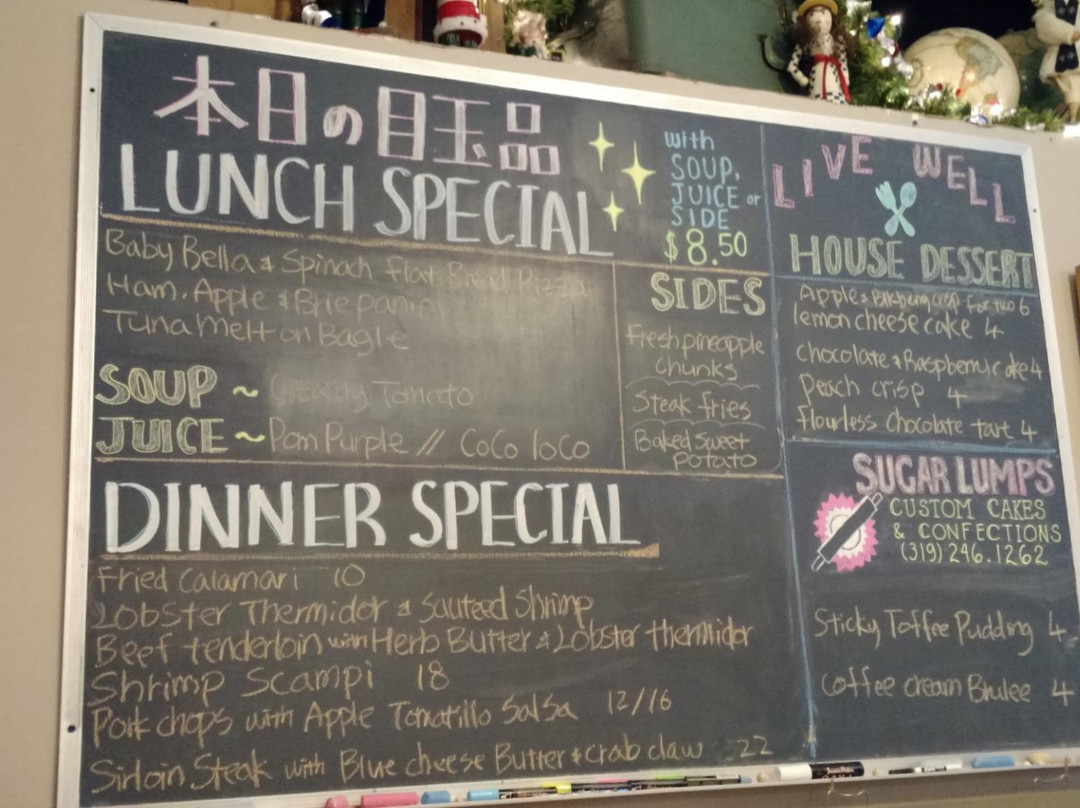 本日の目玉品
LUNCH SPECIAL
with
SOUP,
JUICE or
SIDE
$8.50
Baby Bella & Spinach flat Bread Pizza
Ham, Apple & Brie panini
Tuna Melt on Bagle
SOUP ~ Creamy Tomato
JUICE ~ Pom Purple // CoCo loco
SIDES
Fresh pineapple
chunks
Steak fries
Baked Sweet
potato
DINNER SPECIAL
Fried Calamari 10
Lobster Thermidor & Sauteed Shrimp
Beef tenderloin with Herb Butter & Lobster thermidor
Shrimp Scampi 18
Pork chops with Apple Tomatillo Salsa 12/16
Sirloin Steak with Blue cheese Butter & crab claw 22
LIVE WELL
HOUSE DESSERT
Apple & Blkberry crisp for two 6
lemon cheese cake 4
chocolate & Raspberry cake 4
Peach crisp 4
flourless chocolate tart 4
SUGAR LUMPS
CUSTOM CAKES
& CONFECTIONS
(319) 246.1262
Sticky Toffee Pudding 4
Coffee cream Brulee 4